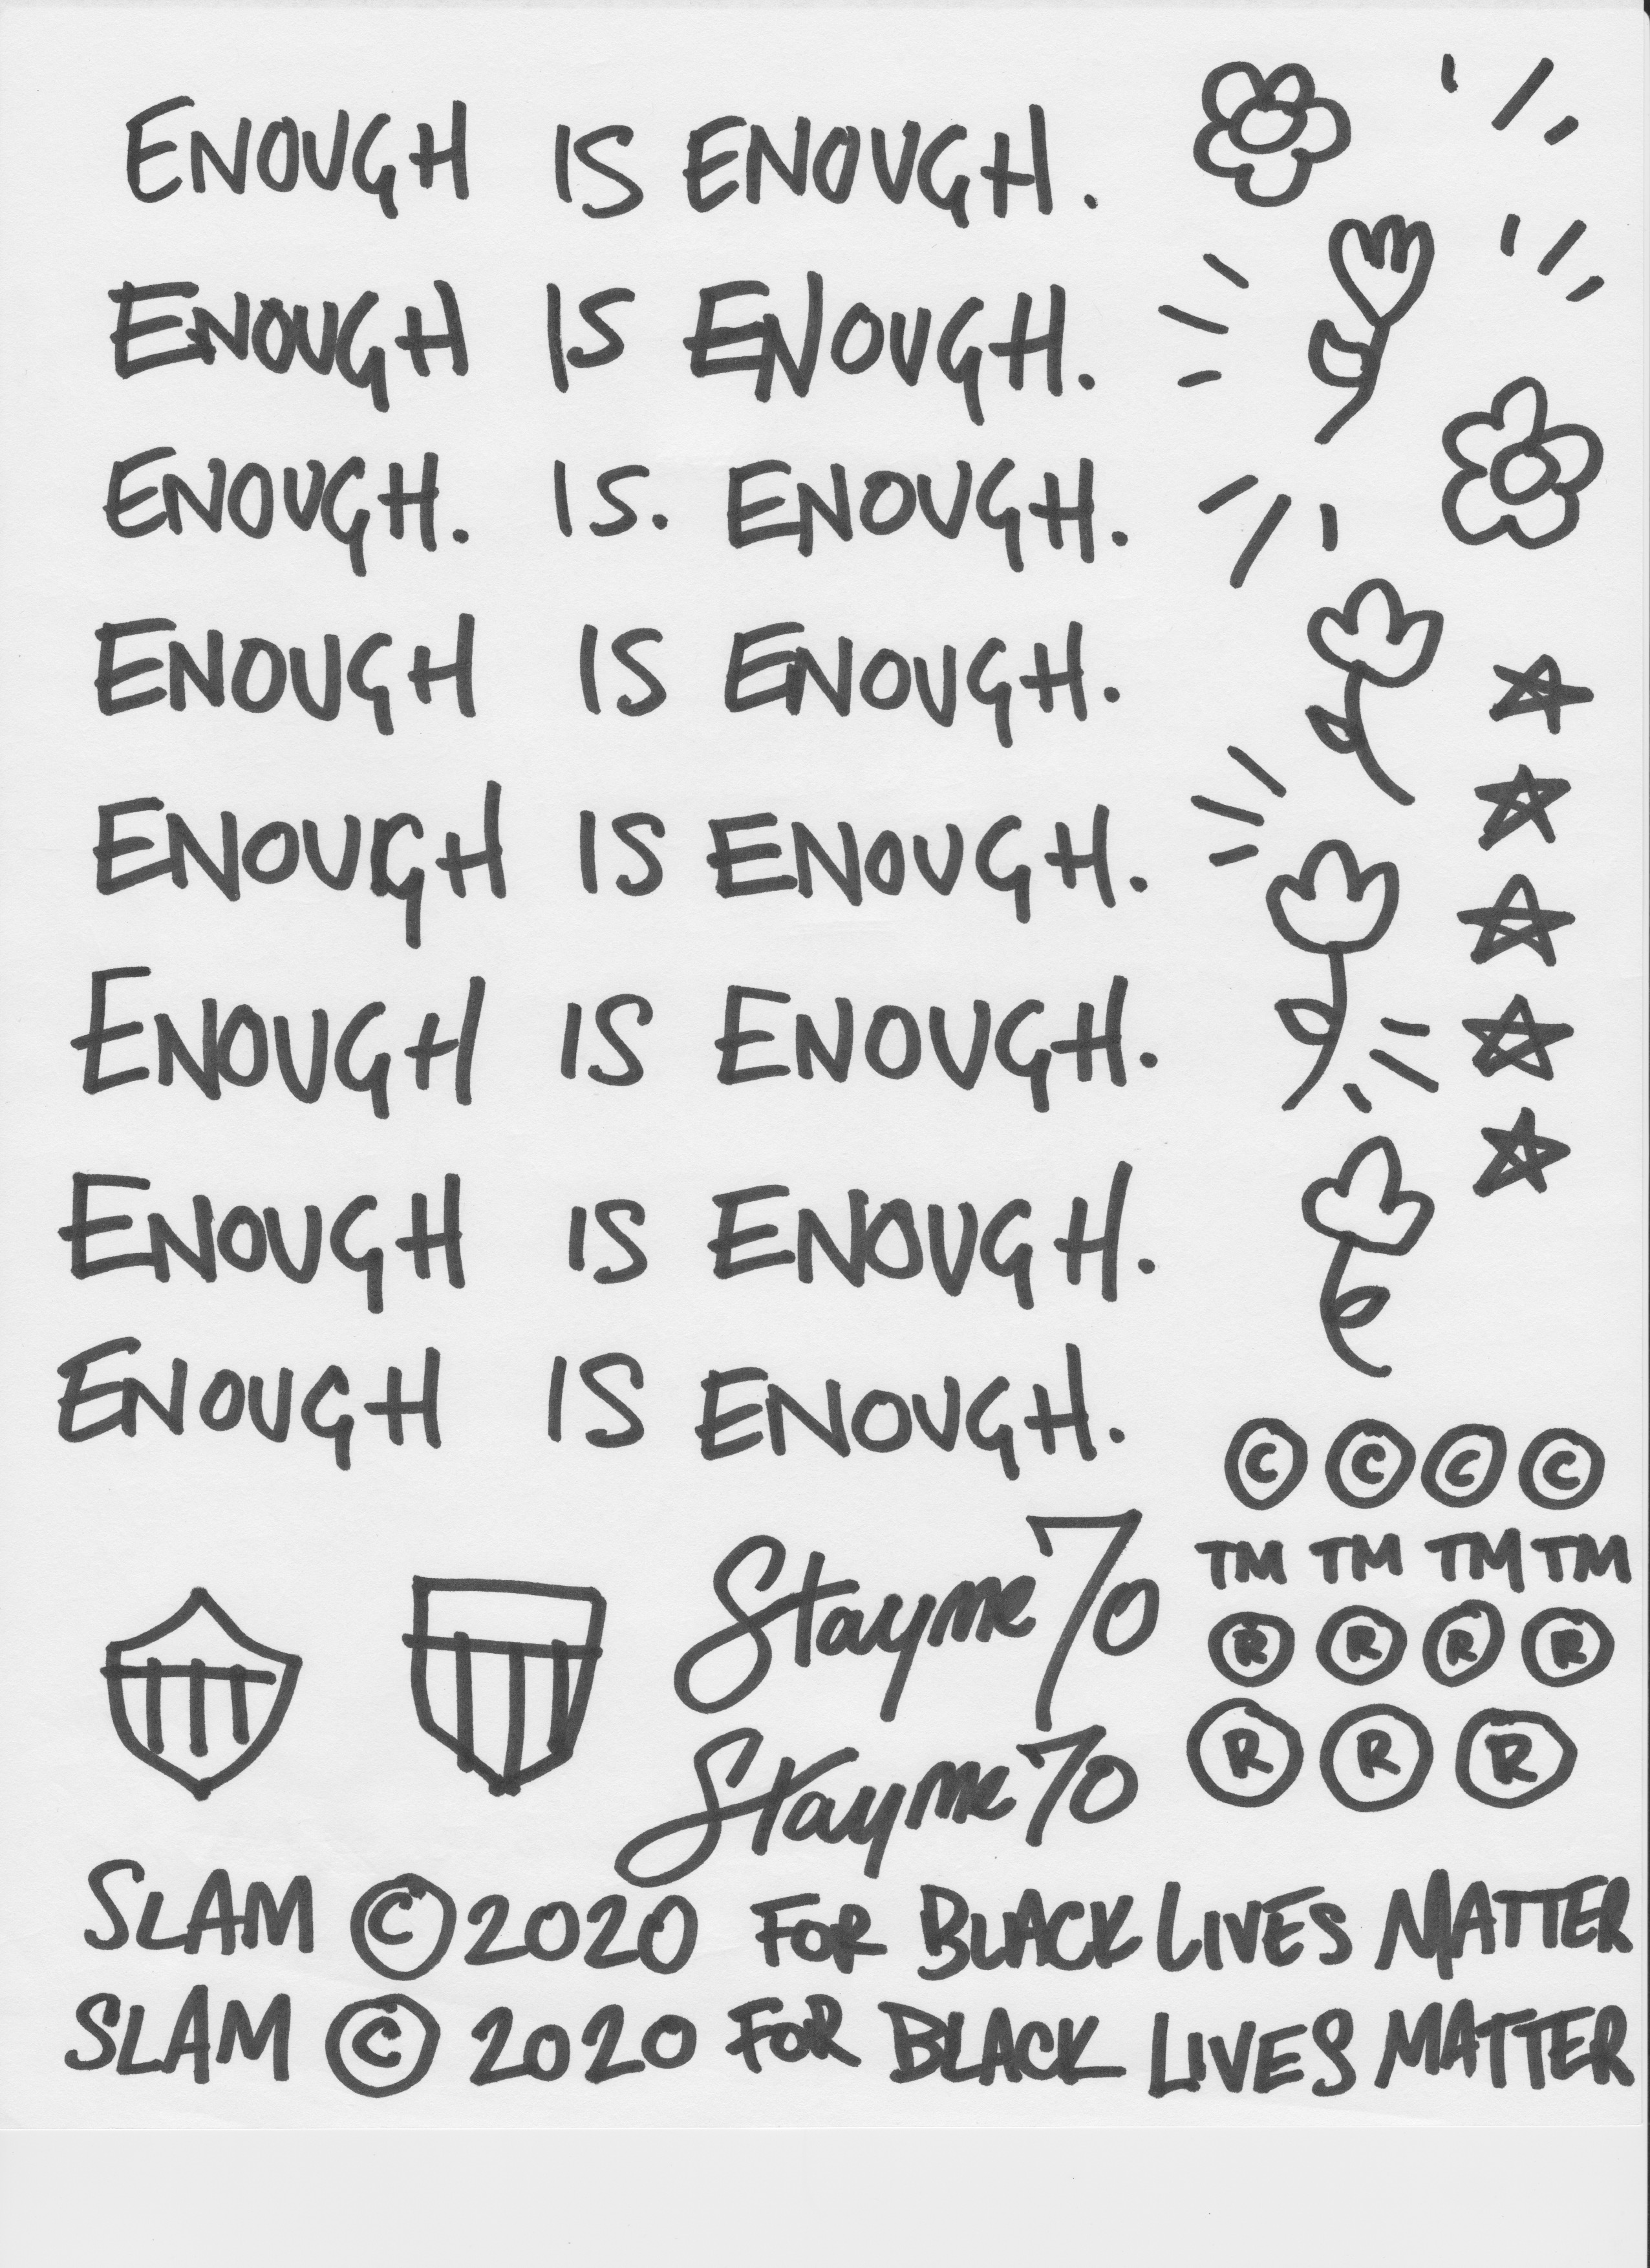 ENOUGH IS ENOUGH.
ENOUGH IS ENOUGH.
ENOUGH. IS. ENOUGH.
ENOUGH IS ENOUGH.
ENOUGH IS ENOUGH.
ENOUGH IS ENOUGH.
ENOUGH IS ENOUGH.
ENOUGH IS ENOUGH.
© © © ©
TM TM TM TM
® ® ® ®
® ® ®
Stayme70
Stayme70
SLAM © 2020 FOR BLACK LIVES MATTER
SLAM © 2020 FOR BLACK LIVES MATTER